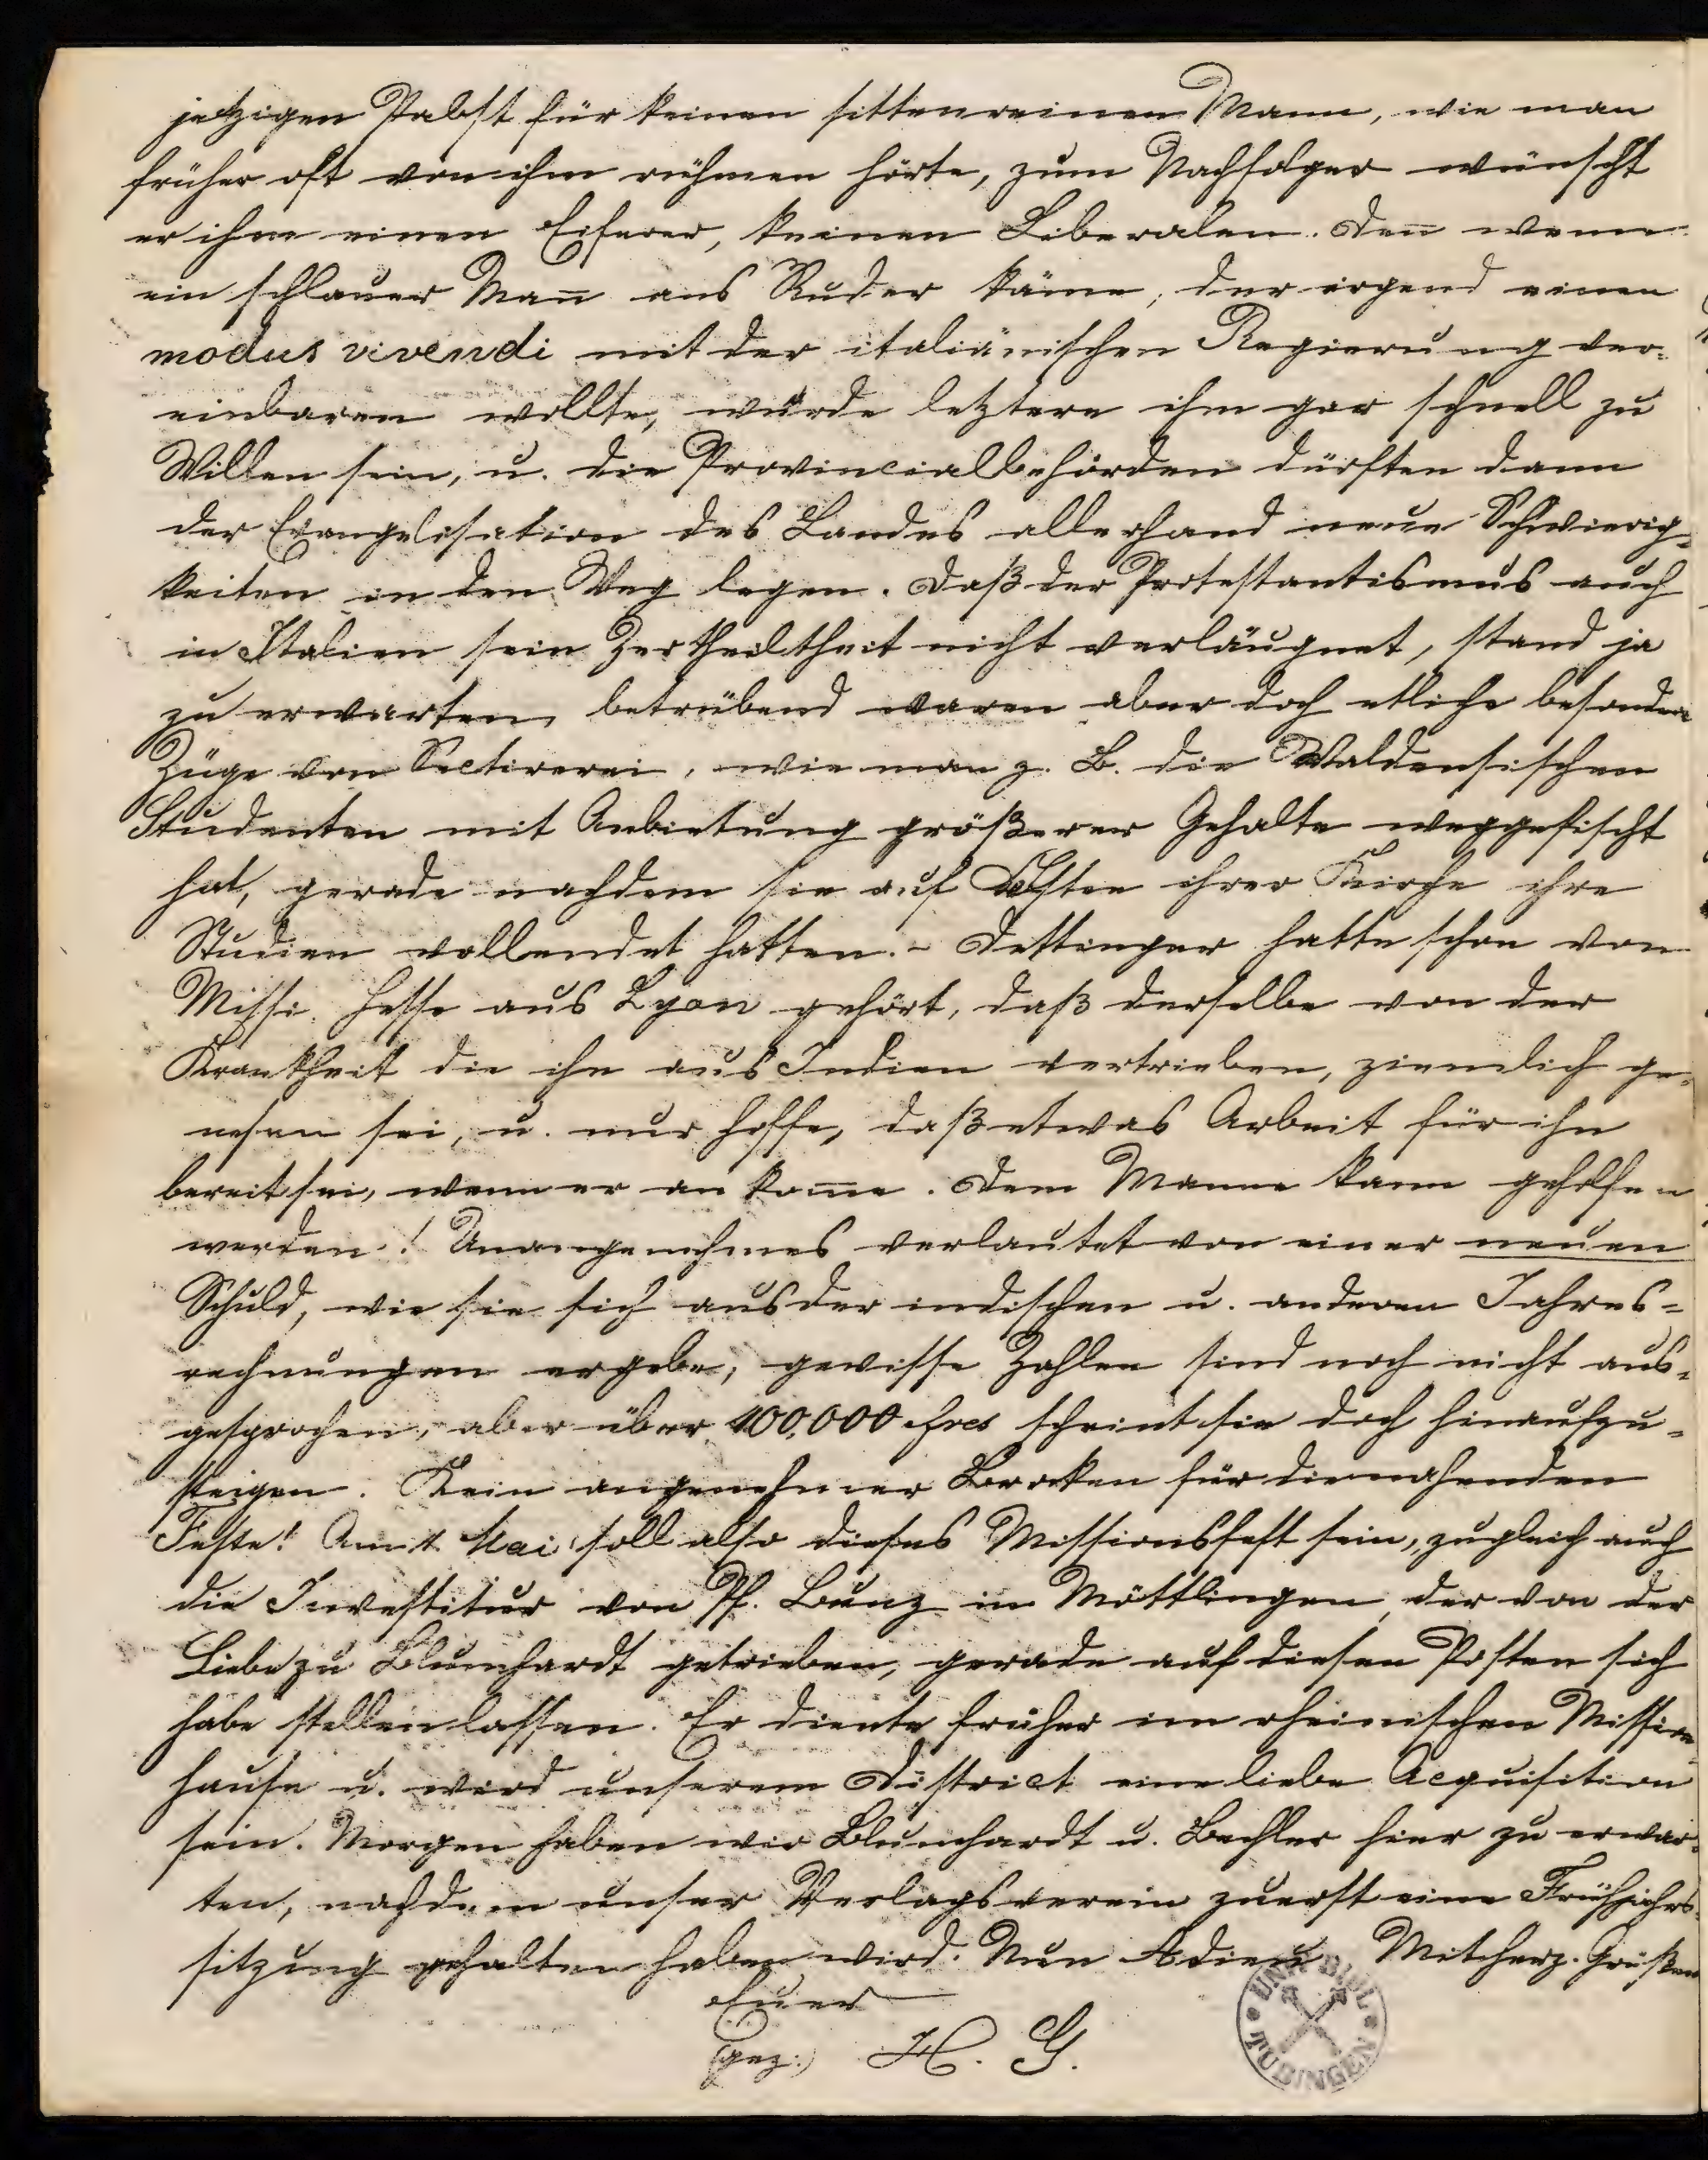 jetzigen Pabst für keinen sittenreinen Mann, wie man
früher oft von ihm rühmen hörte, zum Nachfolger wünscht
er ihm einen Eiferer, keinen Liberalen. Deñ wenn
ein schlauer Mañ ans Ruder käme, der irgend einen
modus vivendi mit der italiänischen Regierung ver-
einbaren wollte, würde letztere ihm gar schnell zu
Willen sein, u. die Provincialbehörden dürften dann
der Evangelisation des Landes allerhand neue Schwierig-
keiten in den Weg legen. Daß der Protestantismus auch
in Italien sein Zertheiltheit nicht verläugnet, stand ja
zu erwarten, betrübend waren aber doch etliche besondere
Züge von Sectirerei, wie man z. B. die Waldensischen
Studenten mit Anbietung größerer Gehalte weggefischt
hat, gerade nachdem sie auf Kosten ihrer Kirche ihre
Studien vollendet hatten. - Dettinger hatte schon von
Missi. Hesse aus Lyon gehört, daß derselbe von der
Krankheit die ihn aus Indien vertrieben, ziemlich ge-
nesen sei, u. nur hoffe, daß etwas Arbeit für ihn
bereit sei, wenn er an kom̄e. Dem Manne kann geholfen
werden! Unangenehmes verlautet von einer neuen
Schuld, wie sie sich aus der indischen u. anderen Jahres-
rechnungen ergebe; gewisse Zahlen sind noch nicht aus-
gesprochen, aber über 100,000 Frcs scheint sie doch hinaufzu-
steigen. Kein angenehmer Brocken für die nahenden
Feste! Am 1 Mai soll also dieses Missionsfest sein, zugleich auch
die Investitur von Pf. Bunz in Möttlingen, der von der
Liebe zu Blumhardt getrieben, gerade auf diesen Posten sich
habe stellen lassen. Er diente früher im rheinischen Mission-
hause u. wird unserem District eine liebe Acquisition
sein. Morgen haben wir Blumhardt u. Bechler hier zu erwar-
ten, nachdem unser Verlagsverein zuerst eine Frühjahrs-
sitzung gehalten haben wird. Nun Adieu Mit herz. Grüßen
Euer
(gez:) H. G.
UNIV. BIBL.
TÜBINGEN